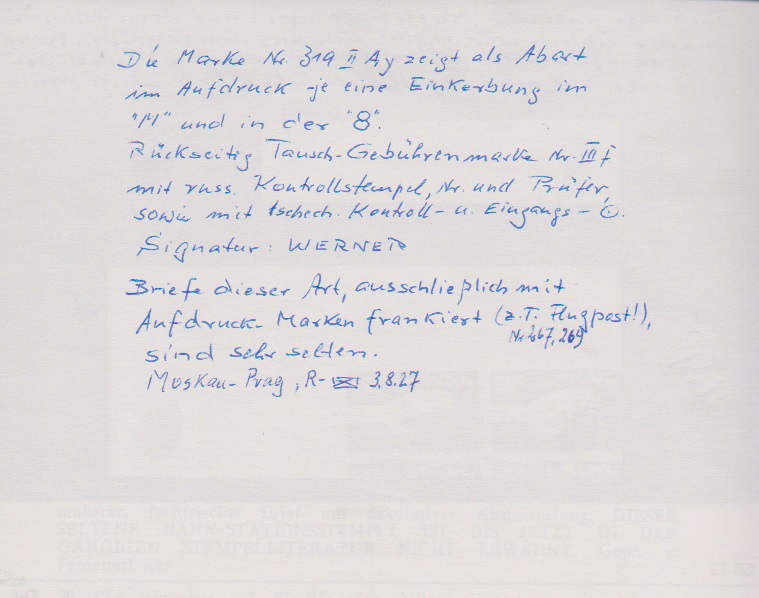 Die Marke Nr. 319 II Ay zeigt als Abart
im Aufdruck je eine Einkerbung im
"M" und in der "8".
Rückseitig Tausch-Gebührenmarke Nr. III f
mit russ. Kontrollstempel, Nr. und Prüfer,
sowie mit tschech. Kontroll- u. Eingangs-
Signatur: WERNER
Briefe dieser Art, ausschließlich mit
Aufdruck-Marken frankiert (z.T. Flugpost!),
Nr. 267, 269
sind sehr selten.
Moskau-Prag, R- 3.8.27
SELTENE BAHN-STATIONSSTEMPEL IST BIS JETZT IN DER
GÄNGIGEN STEMPELLITERATUR NICHT ERKANNT.